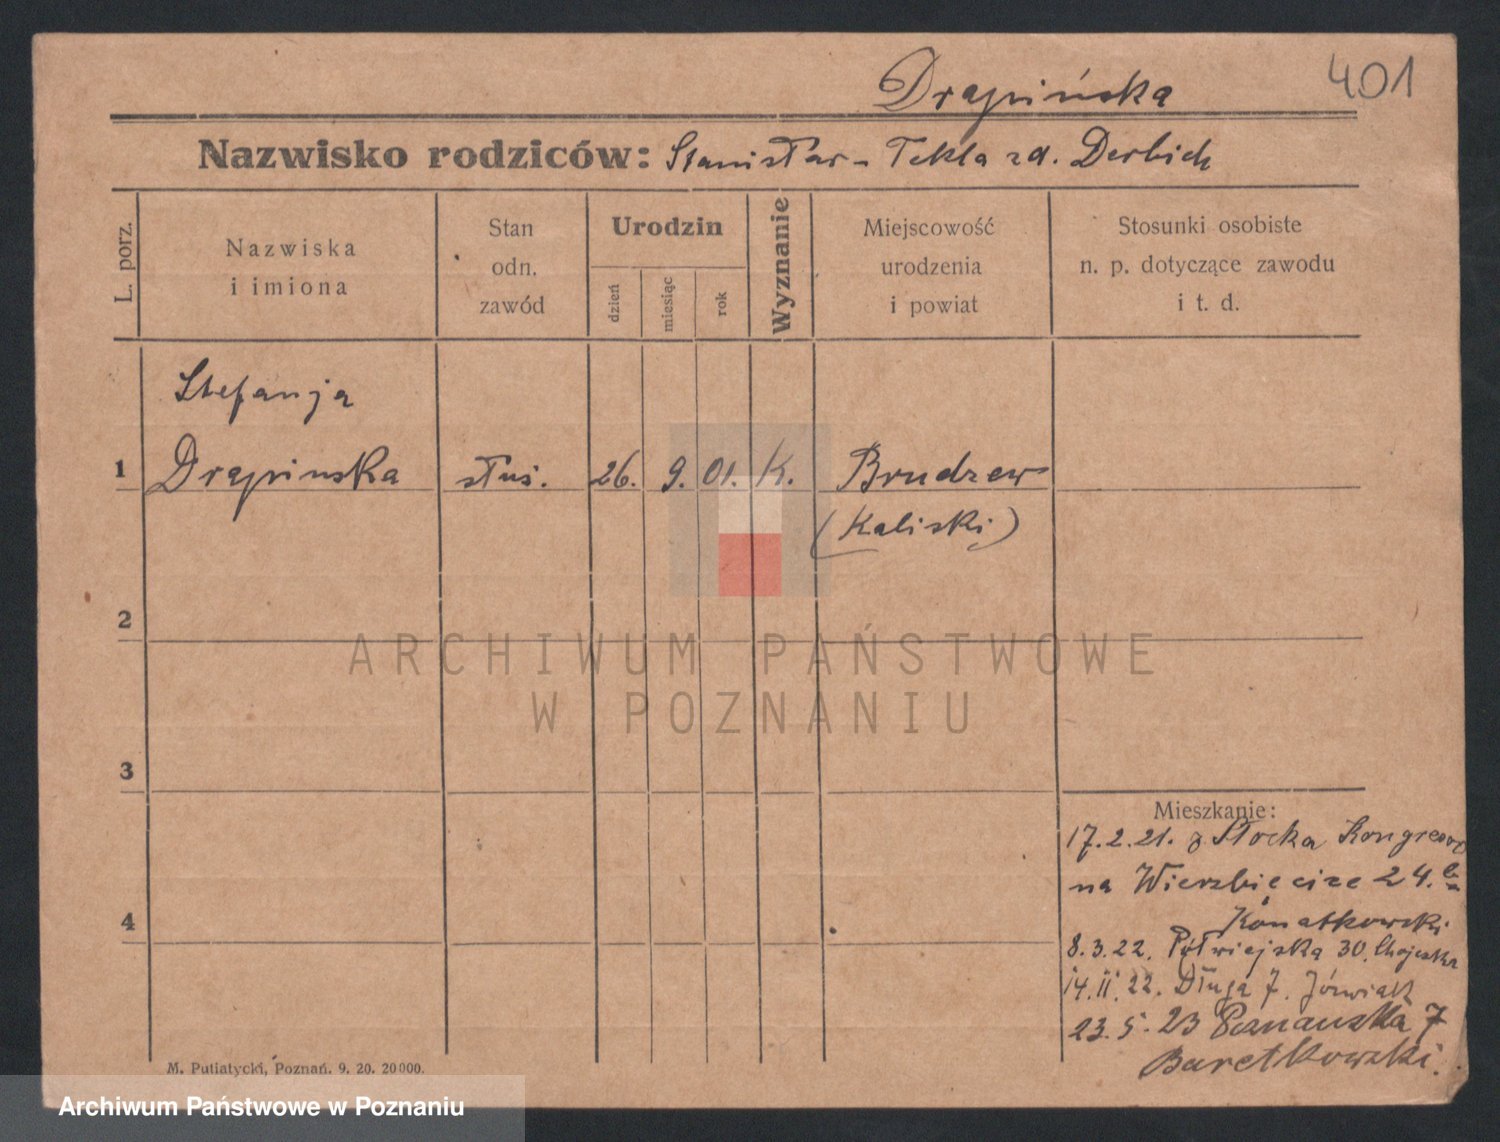 Drapińska
401
Nazwisko rodziców: Stanisław - Tekla zd. Derbich
L. porz.
Nazwiska
i imiona
Stan
odn.
zawód
Urodzin
dzień
miesiąc
rok
Wyznanie
Miejscowość
urodzenia
i powiat
Stosunki osobiste
n. p. dotyczące zawodu
i t. d.
Stefanja
1 Drapinska służ. 26. 9. 01. K. Brudzew
(Kaliski)
2
ARCHIWUM PAŃSTWOWE
W POZNANIU
3
4
Mieszkanie:
17.2.21. z Płocka
na Wierzbięcice 24.
8.3.22. Półwiejska 30.
14.11.22. Długa 7. Jóźwiak
23.5.23 Poznańska 7
M. Putiatycki, Poznań. 9. 20. 20000.
Archiwum Państwowe w Poznaniu